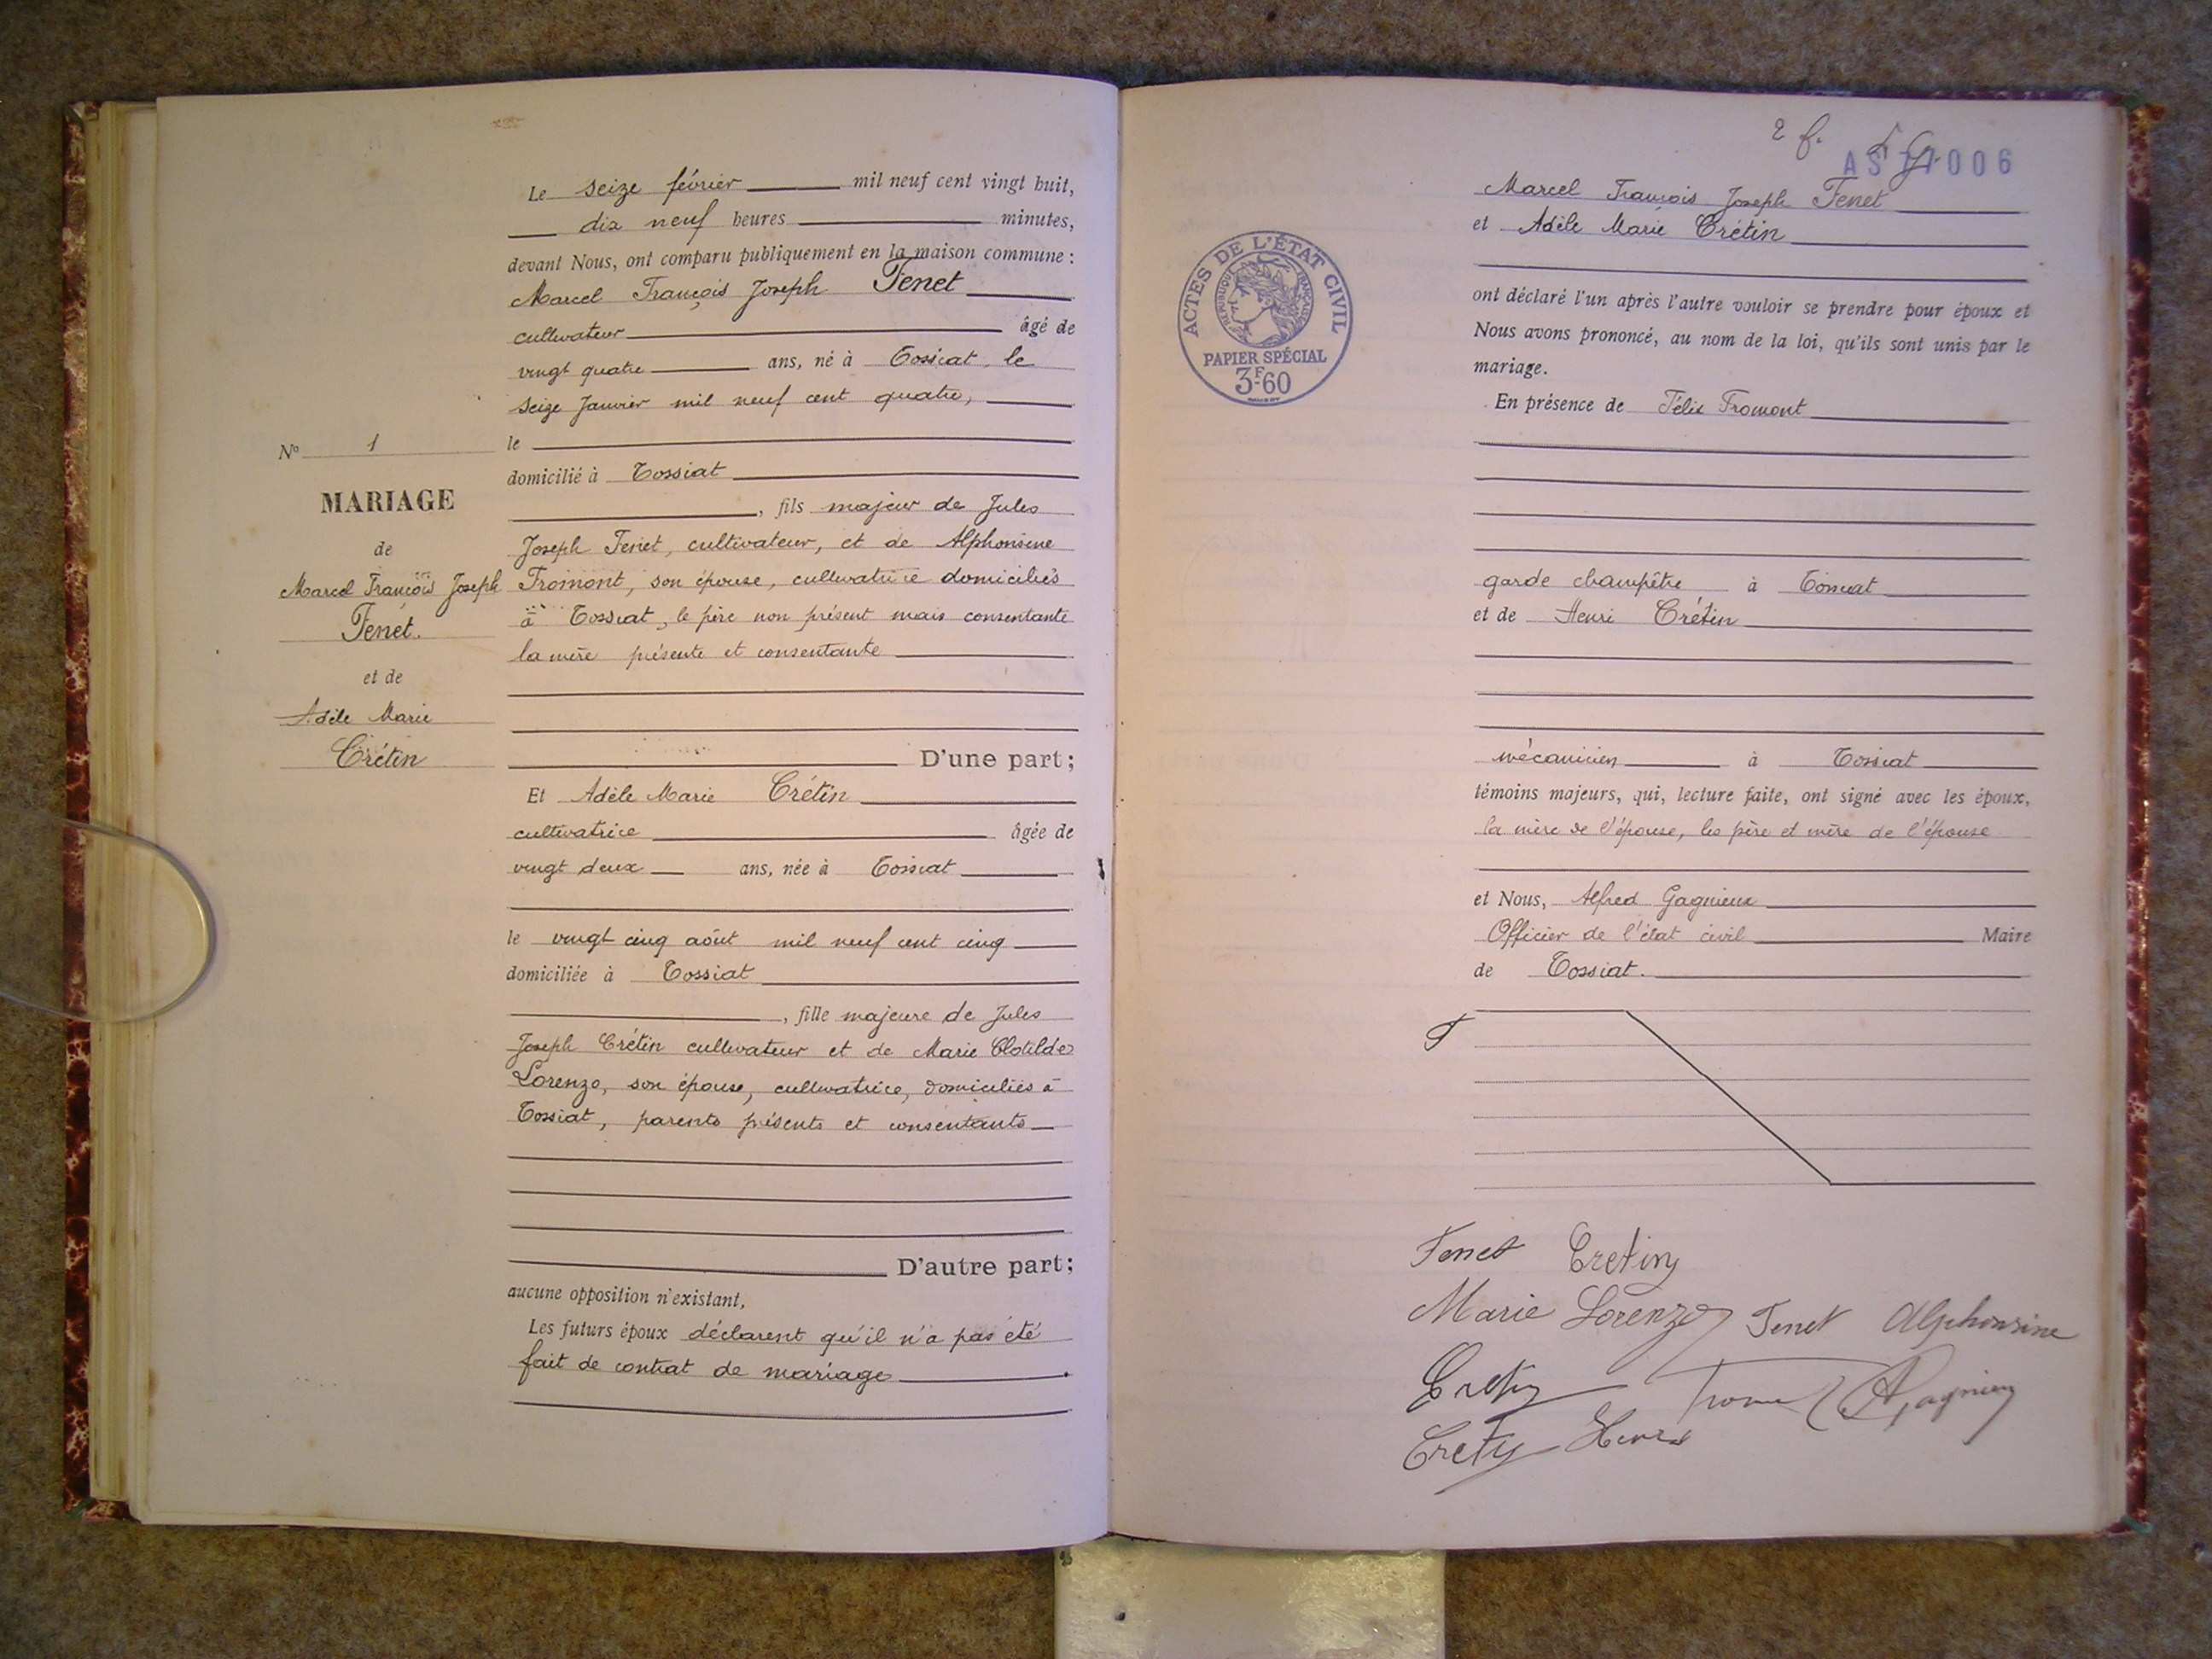 Le seize février mil neuf cent vingt huit,
dix neuf heures minutes,
devant Nous, ont comparu publiquement en la maison commune :
Marcel François Joseph Fenet
cultivateur âgé de
vingt quatre ans, né à Tossiat, le
seize Janvier mil neuf cent quatre,
le
domicilié à Tossiat
, fils majeur de Jules
Joseph Fenet, cultivateur, et de Alphonsine
Fromont, son épouse, cultivatrice domiciliés
à Tossiat, le père non présent mais consentante
la mère présente et consentante
D'une part;
Et Adèle Marie Crétin
cultivatrice âgée de
vingt deux ans, née à Tossiat
le vingt cinq août mil neuf cent cinq
domiciliée à Tossiat
, fille majeure de Jules
Joseph Crétin cultivateur et de Marie Clotilde
Lorenzo, son épouse, cultivatrice, domiciliés à
Tossiat, parents présents et consentants
D'autre part;
aucune opposition n'existant,
Les futurs époux déclarent qu'il n'a pas été
fait de contrat de mariage.
No 1
MARIAGE
de
Marcel François Joseph
Fenet.
et de
Adèle Marie
Crétin
2 f.
006
Marcel François Joseph Fenet
et Adèle Marie Crétin
ACTES DE L'ÉTAT CIVIL
RÉPUBLIQUE FRANÇAISE
PAPIER SPÉCIAL
3F60
ont déclaré l'un après l'autre vouloir se prendre pour époux et
Nous avons prononcé, au nom de la loi, qu'ils sont unis par le
mariage.
En présence de Félix Fromont
garde champêtre à Tossiat
et de Henri Crétin
mécanicien à Tossiat
témoins majeurs, qui, lecture faite, ont signé avec les époux,
la mère de l'épouse, les père et mère de l'épouse
et Nous, Alfred Gagnieux
Officier de l'état civil Maire
de Tossiat.
Fenet Cretin
Marie Lorenzo Fenet Alphonsine
Cretin
Cretin Henri